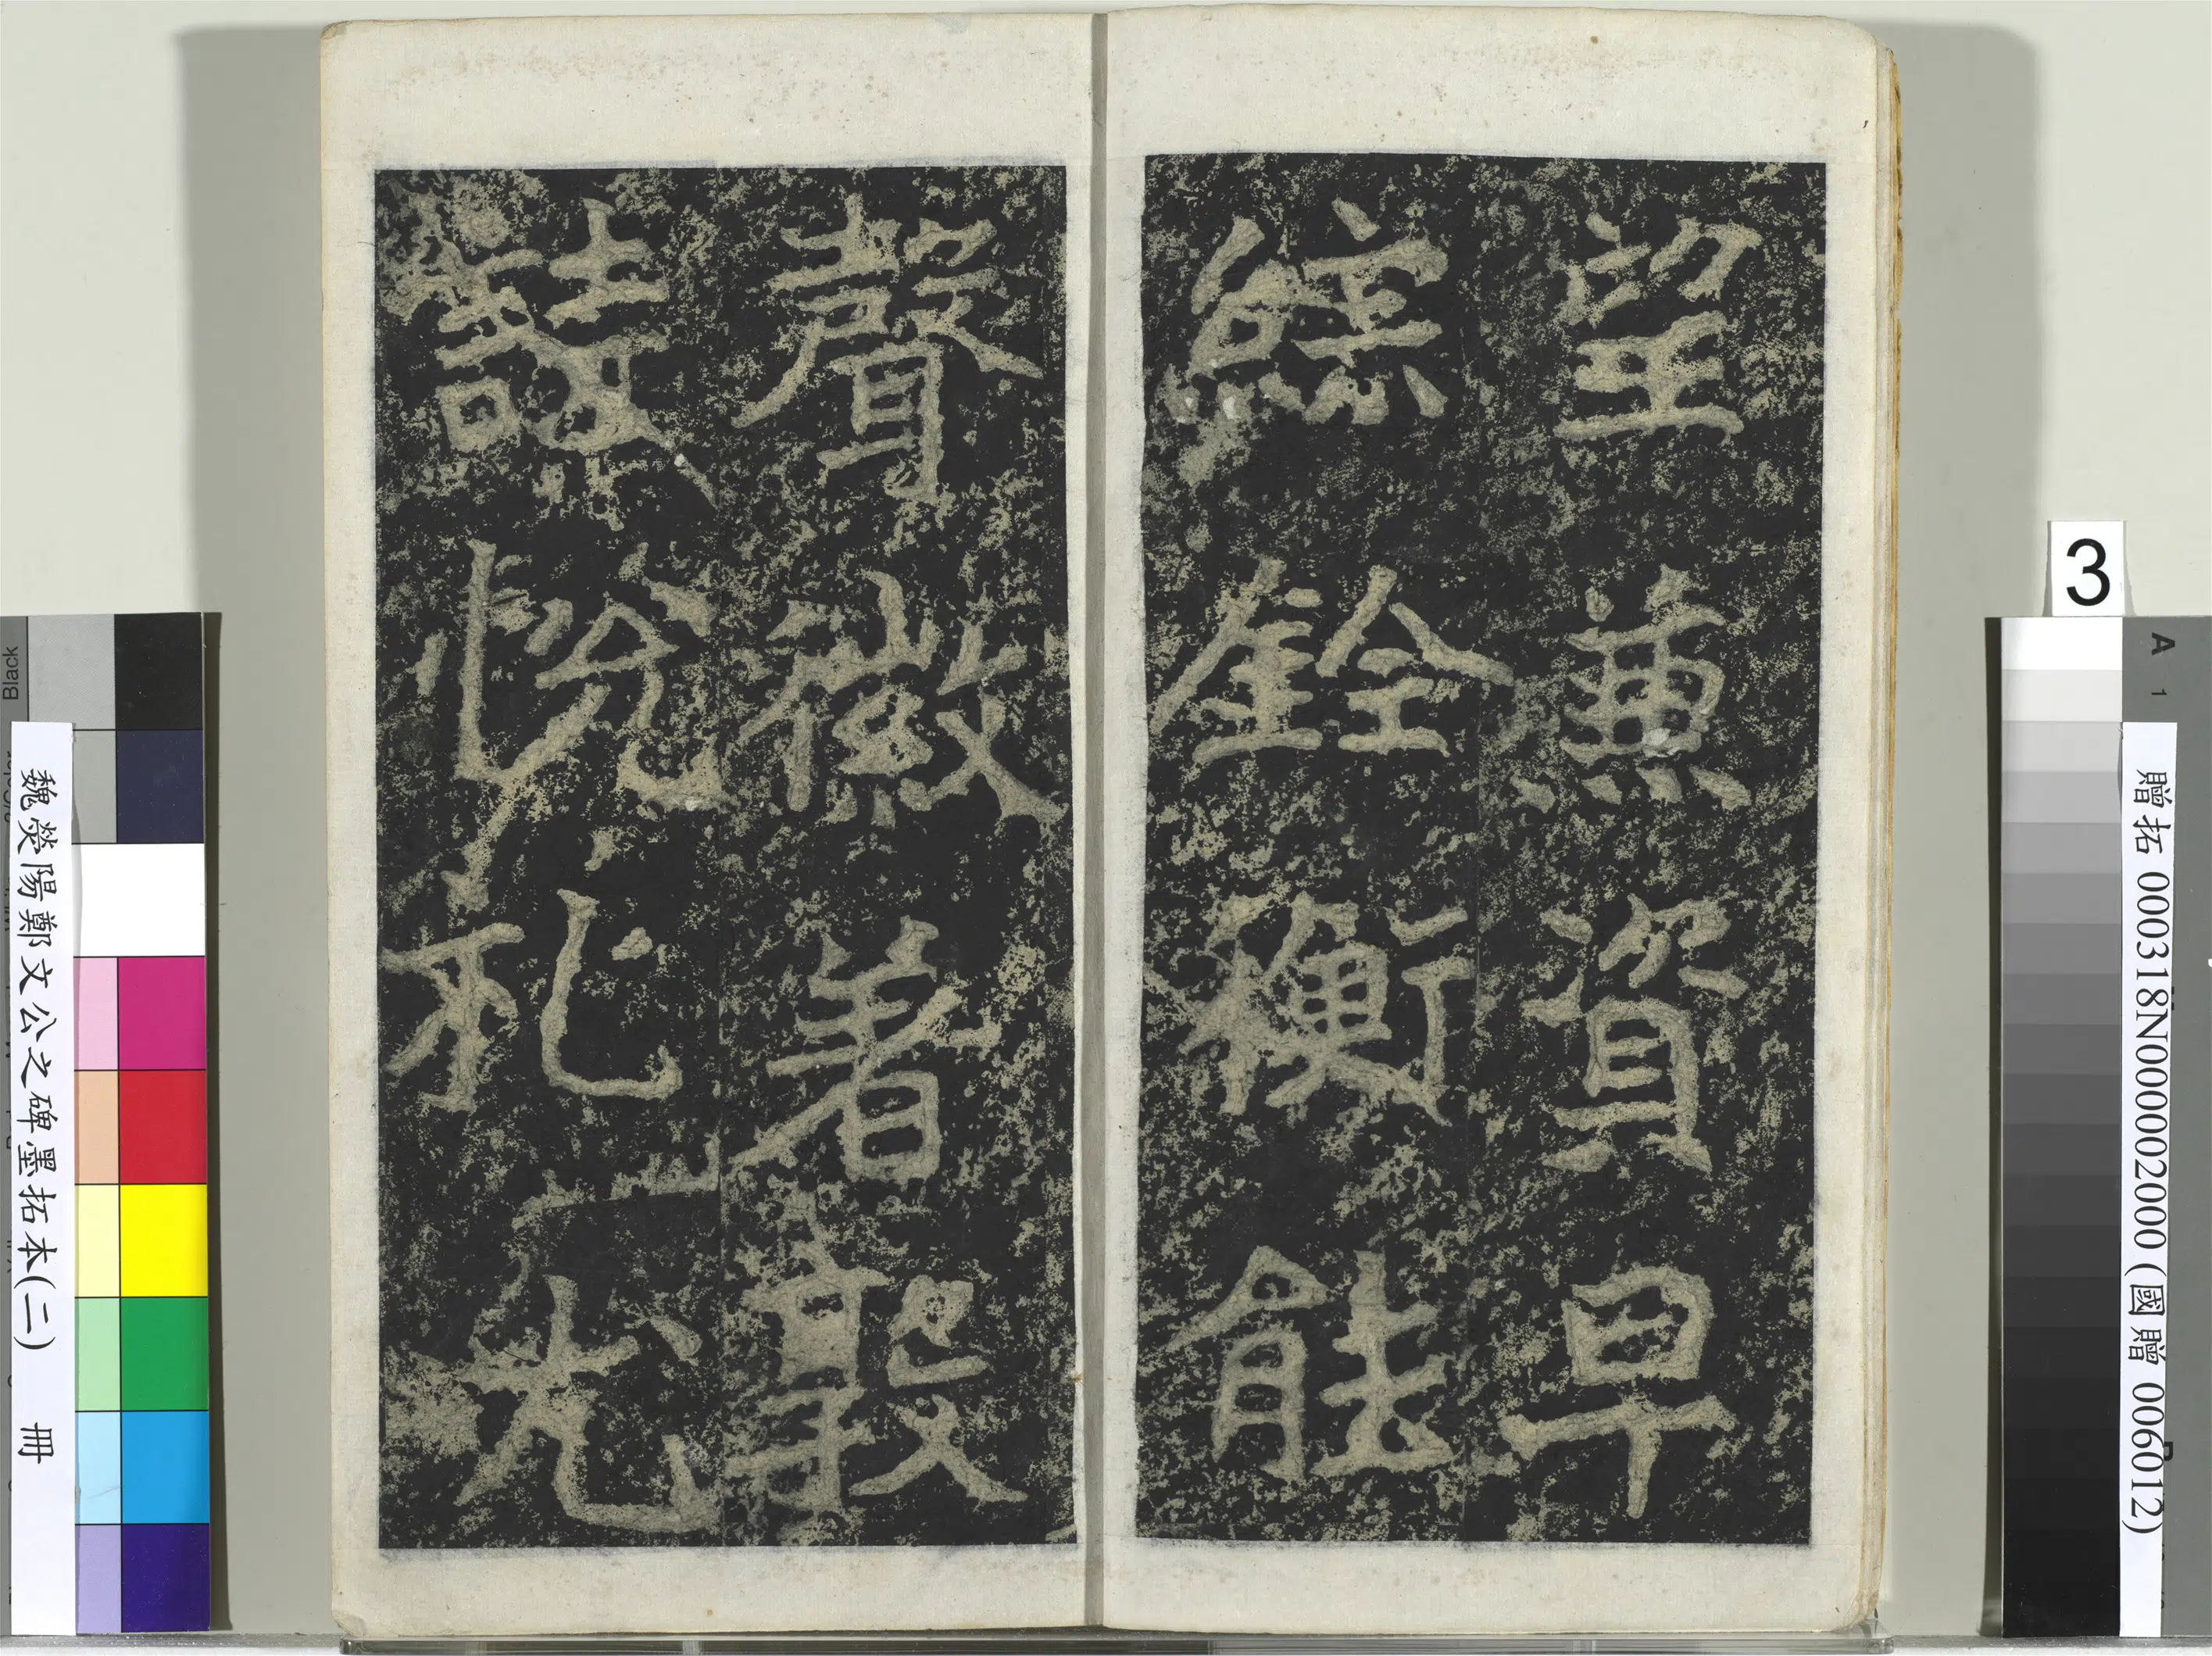 望兼資早
綜銓衡能
聲徽著敦
詩悅礼尤
魏熒陽鄭文公之碑墨拓本(二) 冊
贈拓 000318N000002000 (國贈 006012)
3
A
1
Black